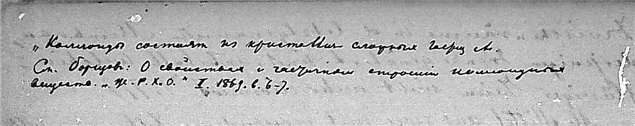 „Коллоиды состоят из кристаллич. сложных частиц".
См. Борщов: О свойствах и частичном строении коллоидных
веществ. „Ж. Р. Х. О." I. 1869. с. 6-7.